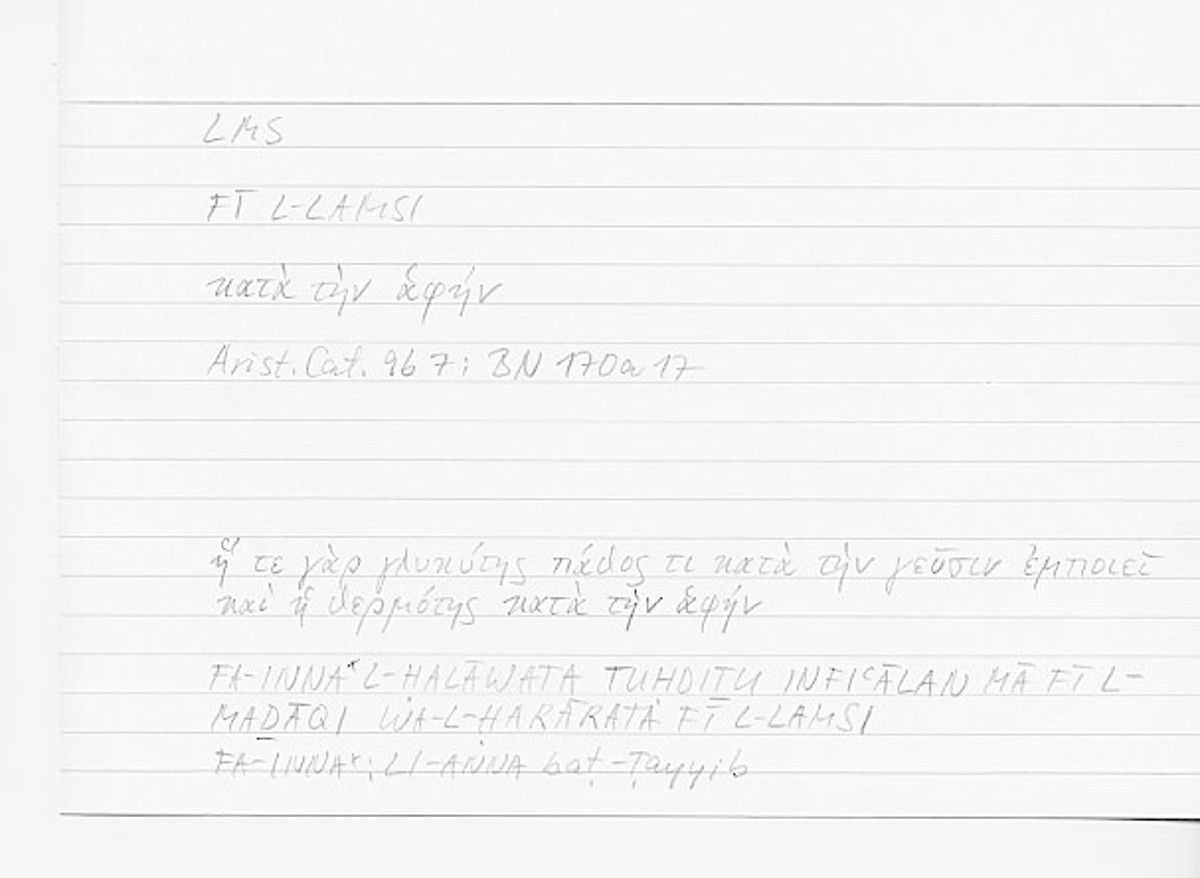 LMS
FĪ L-LAMSI
κατὰ τὴν ἁφήν
Arist. Cat. 9b 7; BN 170a 17
ἥ τε γὰρ γλυκύτης πάθος τι κατὰ τὴν γεῦσιν ἐμποιεῖ
καὶ ἡ θερμότης κατὰ τὴν ἁφήν
FA-INNA* L-ḤALĀWATA TUḤDIṮU INFIʿĀLAN MĀ FĪ L-
MAḎĀQI WA-L-ḤARĀRATA FĪ L-LAMSI
FA-INNA*; LI-ANNA baṭ-Ṭayyib